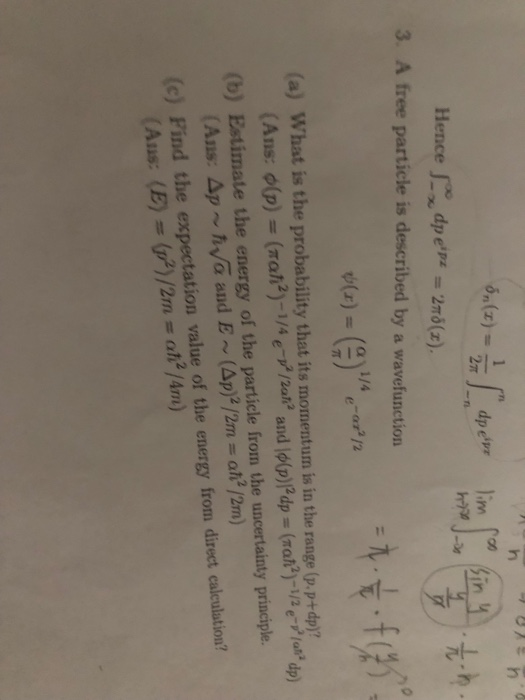 δₙ(x) = 1/2π ∫₋ₙⁿ dp e^{ipx}
Hence ∫_{-∞}^{∞} dp e^{ipx} = 2πδ(x).
lim_{n→∞} ∫_{-∞}^{∞} sin y
= π · 1/π · f(
3. A free particle is described by a wavefunction
ψ(x) = (α/π)^{1/4} e^{-αx²/2}
(a) What is the probability that its momentum is in the range (p, p+dp)?
(Ans: ϕ(p) = (παℏ²)^{-1/4} e^{-p²/2αℏ²} and |ϕ(p)|²dp = (παℏ²)^{-1/2} e^{-p²/αℏ²} dp)
(b) Estimate the energy of the particle from the uncertainty principle.
(Ans: Δp ~ ℏ√α and E ~ (Δp)²/2m = αℏ²/2m)
(c) Find the expectation value of the energy from direct calculation?
(Ans: ⟨E⟩ = ⟨p²⟩/2m = αℏ²/4m)